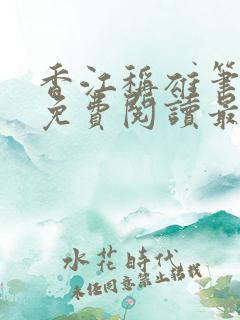 香江稱雄筆
免費閱讀最
水花時代
未經同意禁止轉載